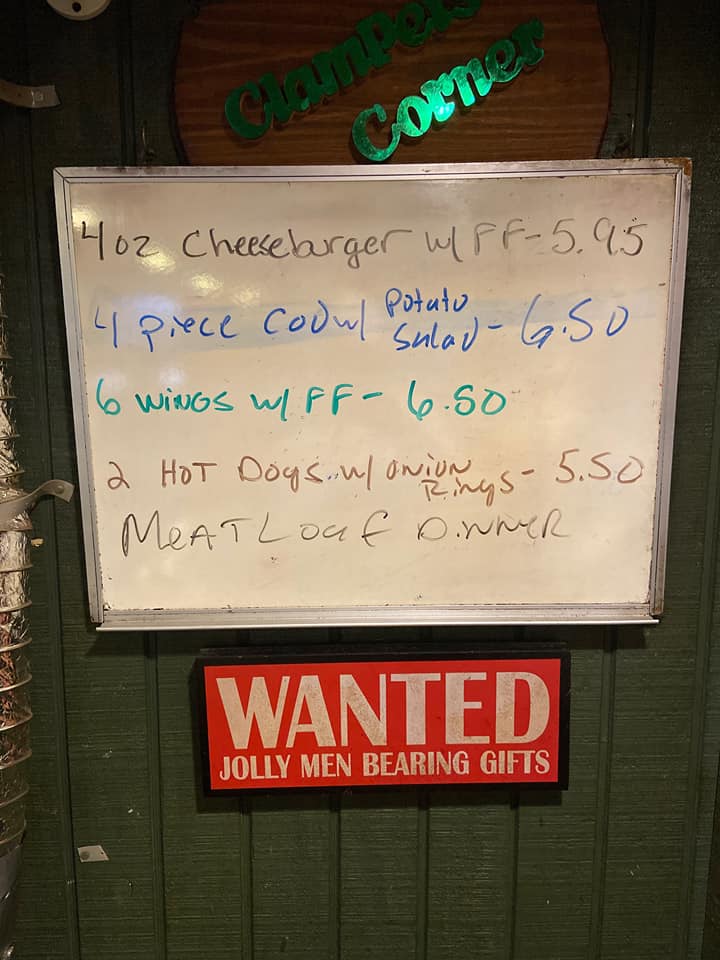 Clampers
Corner
4oz Cheeseburger w/ FF - 5.95
4 piece Cod w/ Potato Salad - 6.50
6 wings w/ FF - 6.50
2 Hot Dogs w/ onion Rings - 5.50
MeatLoaf Dinner
WANTED
JOLLY MEN BEARING GIFTS